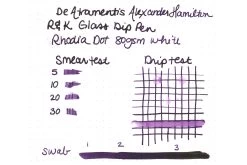 De Atramentis Alexander Hamilton
R&K Glass Dip Pen
Rhodia Dot 80gsm white
Smear test Drip test
5
10
20
30
swab 1 2 3